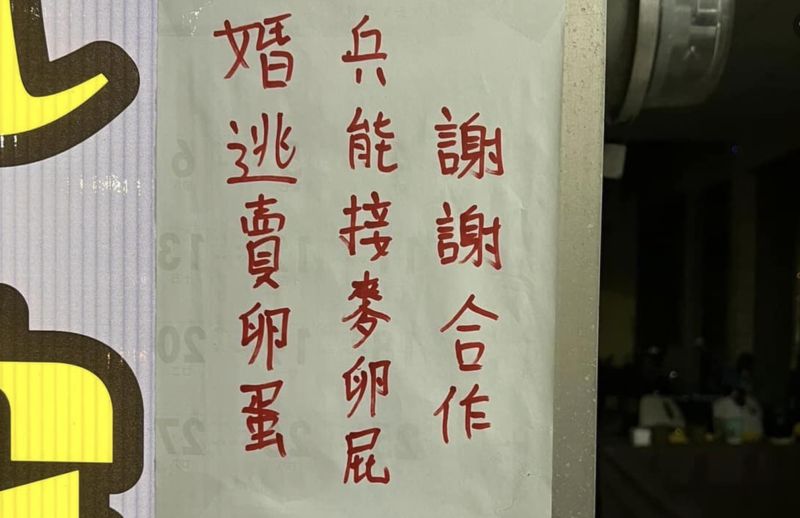 婚逃賣卵蛋
兵能接麥卵屁
謝謝合作